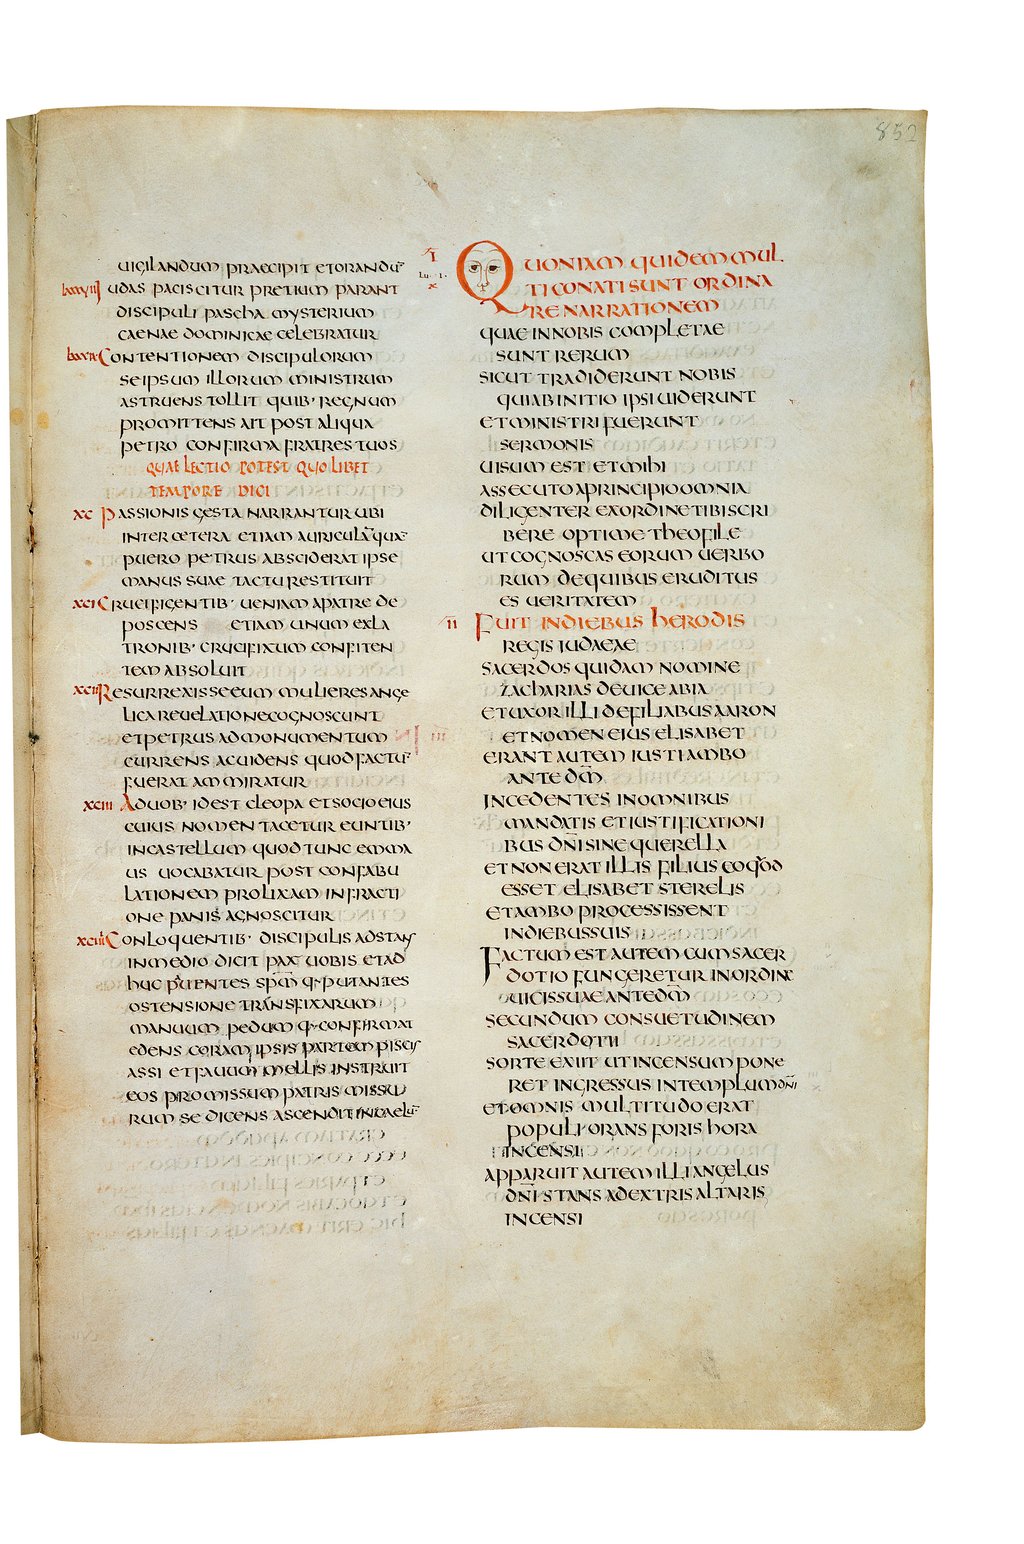 852
UIGILANDUM PRAECIPIT ETORANDU
LXXXVIII UDAS PACISCITUR PRETIUM PARANT
DISCIPULI PASCHA MYSTERIUM
CAENAE DOMINICAE CELEBRATUR
LXXXIX CONTENTIONEM DISCIPULORUM
SEIPSUM ILLORUM MINISTRUM
ASTRUENS TOLLIT QUIB· REGNUM
PROMITTENS AIT POST ALIQUA
PETRO CONFIRMA FRATRES TUOS
QUAE LECTIO POTEST QUO LIBET
TEMPORE DICI
XC PASSIONIS GESTA NARRANTUR UBI
INTER CETERA ETIAM AURICULA QUA
PUERO PETRUS ABSCIDERAT IPSE
MANUS SUAE TACTU RESTITUIT
XCI CRUCIFIGENTIB· UENIAM APATRE DE
POSCENS ETIAM UNUM EXLA
TRONIB· CRUCIFIXUM CONFITEN
TEM ABSOLUIT
XCII RESURREXISSE EUM MULIERES ANGE
LICA REUELATIONE COGNOSCUNT
ETPETRUS ADMONUMENTUM
CURRENS ACUIDENS QUOD FACTU
FUERAT AMMIRATUR
XCIII ADUOB· IDEST CLEOPA ETSOCIO EIUS
CUIUS NOMEN TACETUR EUNTIB·
INCASTELLUM QUOD TUNC EMMA
US UOCABATUR POST CONFABU
LATIONEM PROLIXAM INFRACTI
ONE PANIS AGNOSCITUR
XCIIII CONLOQUENTIB· DISCIPULIS ADSTANS
INMEDIO DICIT PAX UOBIS ETAD
HUC PUENTES SPM Q PUTANTES
OSTENSIONE TRANSFIXARUM
MANUUM PEDUM Q CONFIRMAT
EDENS CORAM IPSIS PARTEM PISCIS
ASSI ETFAUUM MELLIS INSTRUIT
EOS PROMISSUM PATRIS MISSU
RUM SE DICENS ASCENDIT INCAELU
I
LU· I·
X
QUONIAM QUIDEM MUL
TI CONATI SUNT ORDINA
RE NARRATIONEM
QUAE IN NOBIS COMPLETAE
SUNT RERUM
SICUT TRADIDERUNT NOBIS
QUIAB INITIO IPSI UIDERUNT
ET MINISTRI FUERUNT
SERMONIS
UISUM EST ET MIHI
ASSECUTO APRINCIPIO OMNIA
DILIGENTER EXORDINE TIBI SCRI
BERE OPTIME THEOFILE
UT COGNOSCAS EORUM UERBO
RUM DEQUIBUS ERUDITUS
ES UERITATEM
II FUIT INDIEBUS HERODIS
REGIS IUDAEAE
SACERDOS QUIDAM NOMINE
ZACHARIAS DEUICE ABIA
ETUXOR ILLI DEFILIABUS AARON
ETNOMEN EIUS ELISABET
ERANT AUTEM IUSTI AMBO
ANTE DM
INCEDENTES INOMNIBUS
MANDATIS ET IUSTIFICATIONI
BUS DNI SINE QUERELLA
ET NON ERAT ILLIS FILIUS EOQOD
ESSET ELISABET STERELIS
ETAMBO PROCESSISSENT
INDIEBUS SUIS
FACTUM EST AUTEM CUM SACER
DOTIO FUNGERETUR INORDINE
UICIS SUAE ANTE DM
SECUNDUM CONSUETUDINEM
SACERDOTII
SORTE EXIIT UT INCENSUM PONE
RET INGRESSUS INTEMPLUM DNI
ETOMNIS MULTITUDO ERAT
POPULI ORANS FORIS HORA
INCENSI
APPARUIT AUTEM ILLI ANGELUS
DNI STANS ADEXTRIS ALTARIS
INCENSI